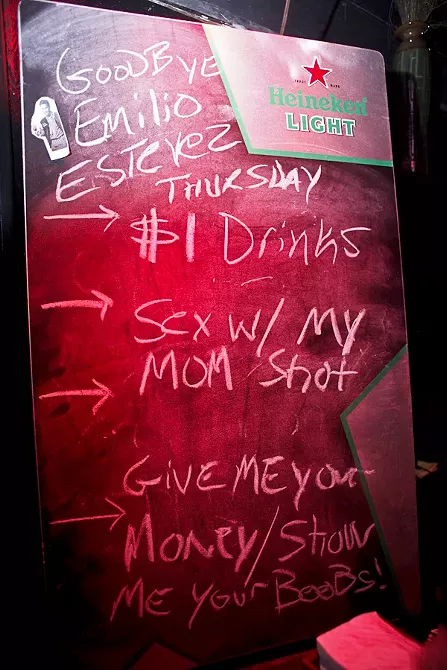 GOODBYE
Emilio
Estevez
THURSDAY
Heineken
LIGHT
→ $1 Drinks
→ Sex w/ My
→ MOM Shot
GIVE ME your
→ Money/Show
ME your BooBs!